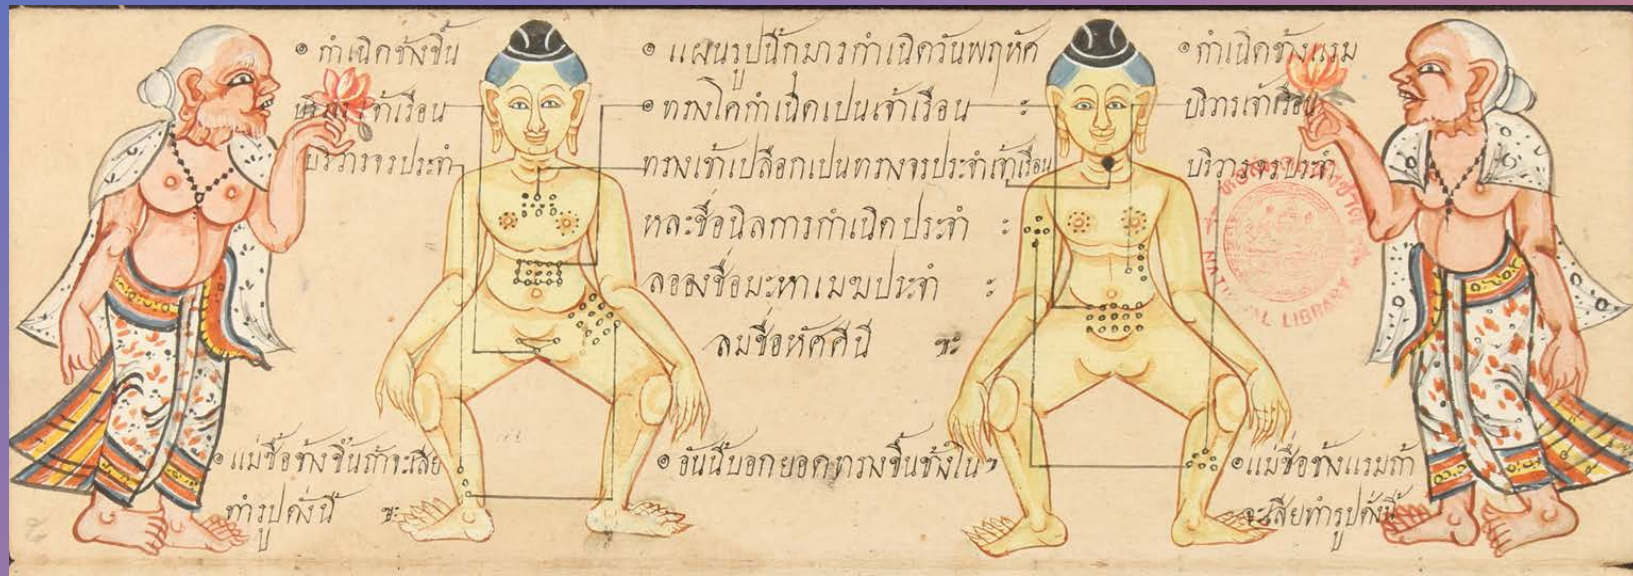 ๏ กำเนิดข้างขึ้น
บริวารเจ้าเรือน
บริวารจรประจำ
๏ แผนรูปนี้กุมารกำเนิดวันพฤหัศ
๏ ทรางโคกำเนิดเปนเจ้าเรือน ะ
ทรางเข้าเปลือกเปนทรางจรประจำเจ้าเรือน
หละชื่อนิลการกำเนิดประจำ ะ
ลอองชื่อมะหาเมฆประจำ ะ
ลมชื่อหัศคินี ๚ะ
๏ กำเนิดข้างแรม
บริวารเจ้าเรือน
บริวารจรประจำ
NATIONAL LIBRARY
๏ แม่ซื้อข้างขึ้นถ้าจะเสีย
ทำรูปดั่งนี้ ๚ะ
๏ อันนี้บอกยอดทรางขึ้นข้างใน ๚
๏ แม่ซื้อข้างแรมถ้า
จะเสียทำรูปดั่งนี้